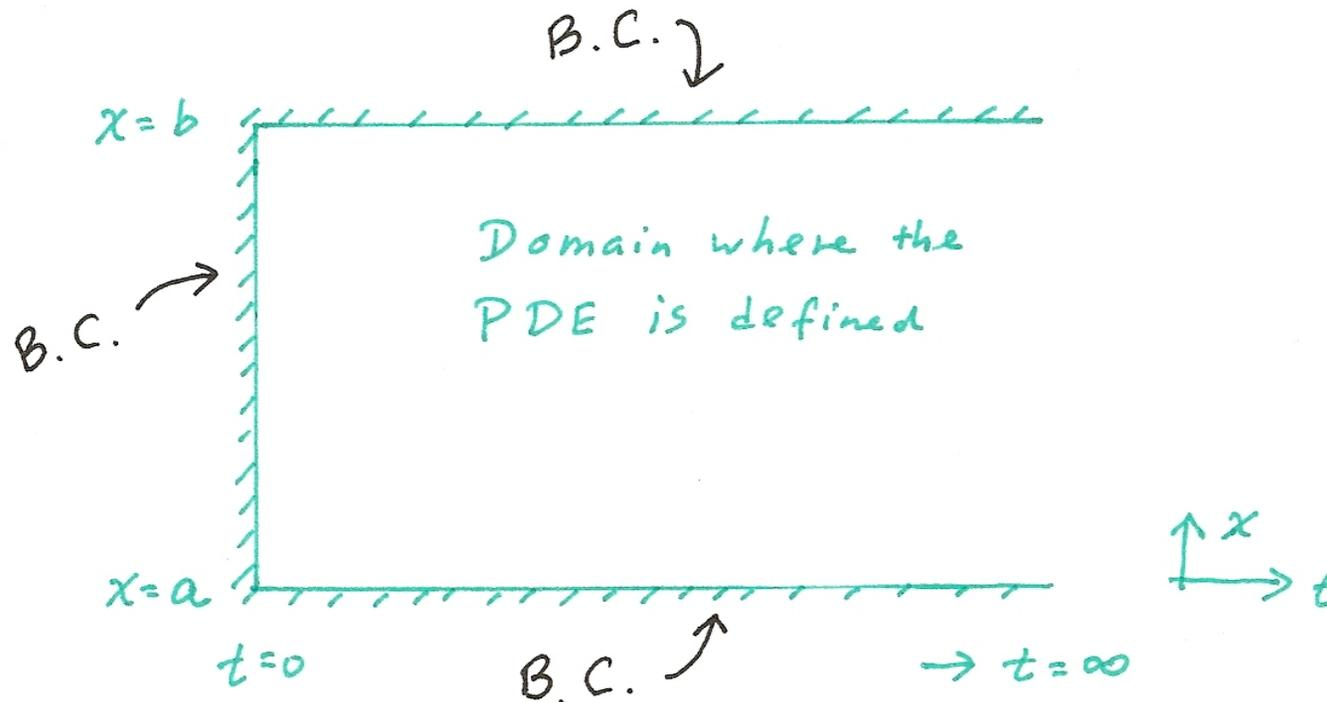 B.C.
x=b
Domain where the
PDE is defined
B.C.
x
t
x=a
t=0
B.C.
→ t=∞